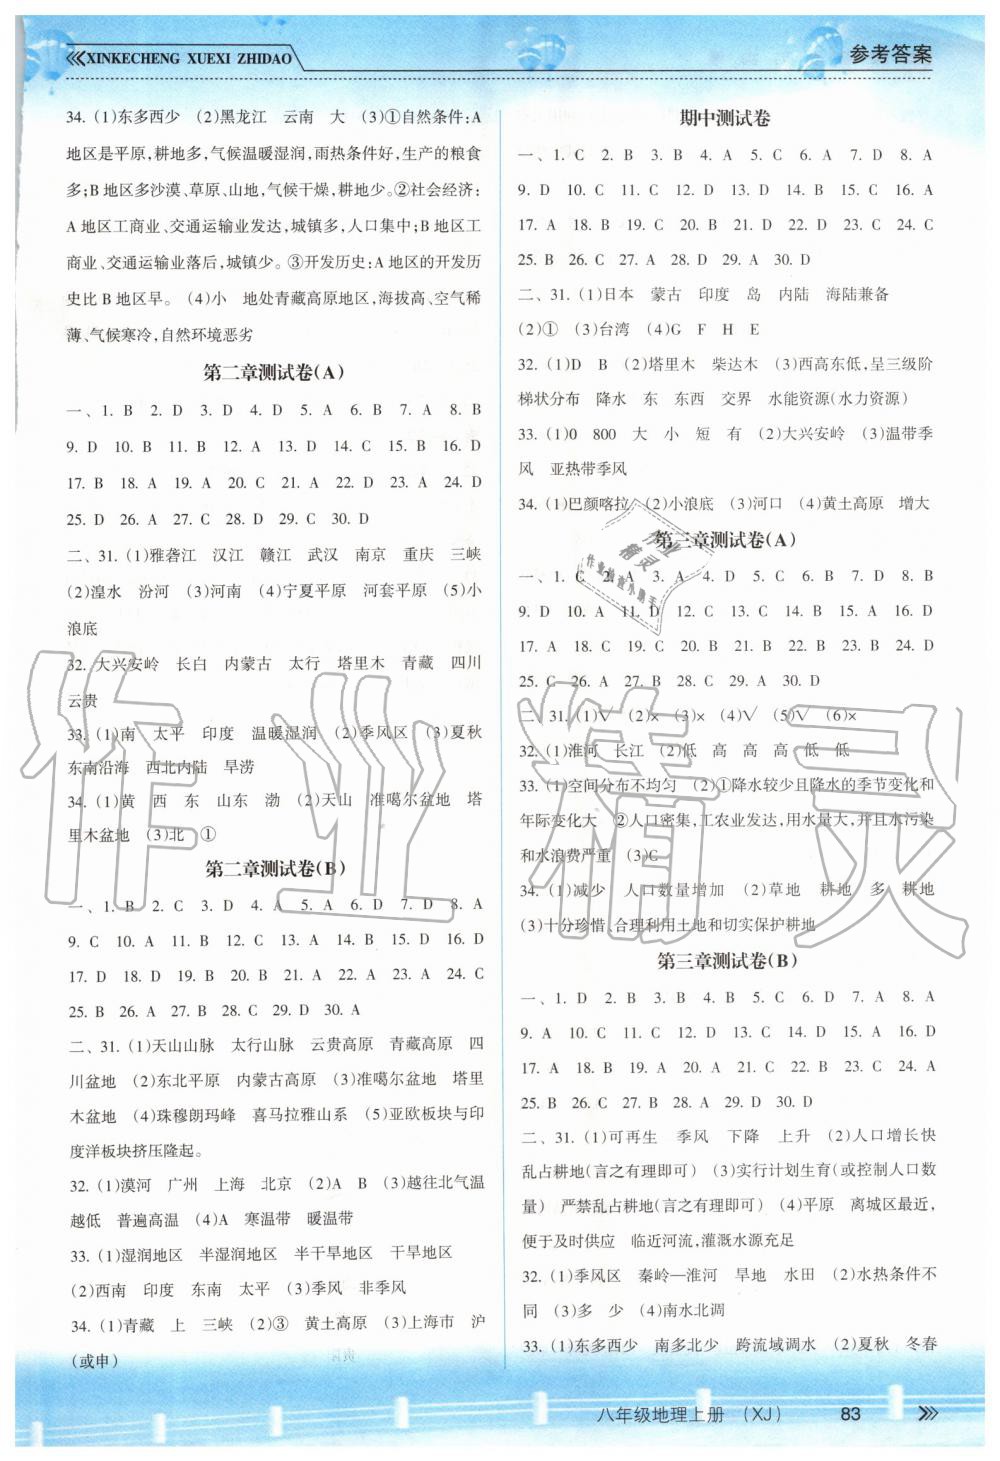 XINKECHENG XUEXI ZHIDAO
参考答案
34. (1)东多西少 (2)黑龙江 云南 大 (3)①自然条件:A
地区是平原,耕地多,气候温暖湿润,雨热条件好,生产的粮食
多;B 地区多沙漠、草原、山地,气候干燥,耕地少。②社会经济:
A 地区工商业、交通运输业发达,城镇多,人口集中;B 地区工
商业、交通运输业落后,城镇少。③开发历史:A 地区的开发历
史比 B 地区早。 (4)小 地处青藏高原地区,海拔高、空气稀
薄、气候寒冷,自然环境恶劣
第二章测试卷(A)
一、1. B 2. D 3. D 4. D 5. A 6. B 7. A 8. B
9. D 10. B 11. B 12. A 13. D 14. C 15. B 16. D
17. B 18. A 19. A 20. C 21. A 22. D 23. A 24. D
25. D 26. A 27. C 28. D 29. C 30. D
二、31. (1)雅砻江 汉江 赣江 武汉 南京 重庆 三峡
(2)湟水 汾河 (3)河南 (4)宁夏平原 河套平原 (5)小
浪底
32. 大兴安岭 长白 内蒙古 太行 塔里木 青藏 四川
云贵
33. (1)南 太平 印度 温暖湿润 (2)季风区 (3)夏秋
东南沿海 西北内陆 旱涝
34. (1)黄 西 东 山东 渤 (2)天山 准噶尔盆地 塔
里木盆地 (3)北 ①
第二章测试卷(B)
一、1. B 2. C 3. D 4. A 5. A 6. D 7. D 8. A
9. C 10. A 11. B 12. D 13. C 14. B 15. C 16. D
17. D 18. D 19. A 20. C 21. A 22. D 23. A 24. C
25. B 26. A 27. B 28. C 29. D 30. A
二、31. (1)天山山脉 太行山脉 云贵高原 青藏高原 四
川盆地 (2)东北平原 内蒙古高原 (3)准噶尔盆地 塔里
木盆地 (4)珠穆朗玛峰 喜马拉雅山系 (5)亚欧板块与印
度洋板块挤压隆起。
32. (1)漠河 广州 上海 北京 (2)A B (3)越往北气温
越低 普遍高温 (4)A 寒温带 暖温带
33. (1)湿润地区 半湿润地区 半干旱地区 干旱地区
(2)西南 印度 东南 太平 (3)季风 非季风
34. (1)青藏 上 三峡 (2)③ 黄土高原 (3)上海市 沪
(或申)
期中测试卷
一、1. C 2. B 3. B 4. A 5. C 6. A 7. D 8. A
9. D 10. C 11. B 12. D 13. B 14. C 15. C 16. A
17. A 18. B 19. C 20. B 21. D 22. D 23. C 24. C
25. B 26. C 27. A 28. D 29. A 30. D
二、31. (1)日本 蒙古 印度 岛 内陆 海陆兼备
(2)① (3)台湾 (4)G F H E
32. (1)D B (2)塔里木 柴达木 (3)西高东低,呈三级阶
梯状分布 降水 东 东西 交界 水能资源(水力资源)
33. (1)0 800 大 小 短 有 (2)大兴安岭 (3)温带季
风 亚热带季风
34. (1)巴颜喀拉 (2)小浪底 (3)河口 (4)黄土高原 增大
第三章测试卷(A)
一、1. C 2. A 3. A 4. D 5. C 6. D 7. D 8. B
9. D 10. A 11. D 12. C 13. C 14. A 15. A 16. D
17. A 18. A 19. D 20. C 21. D 22. A 23. B 24. D
25. C 26. A 27. B 28. C 29. A 30. D
二、31. (1)√ (2)× (3)× (4)√ (5)√ (6)×
32. (1)淮河 长江 (2)低 高 高 高 低 低
33. (1)空间分布不均匀 (2)①降水较少且降水的季节变化和
年际变化大 ②人口密集,工农业发达,用水量大,并且水污染
和水浪费严重 (3)C
34. (1)减少 人口数量增加 (2)草地 耕地 多 耕地
(3)十分珍惜、合理利用土地和切实保护耕地
第三章测试卷(B)
一、1. D 2. B 3. B 4. B 5. C 6. D 7. A 8. A
9. A 10. C 11. C 12. D 13. C 14. D 15. A 16. D
17. D 18. B 19. A 20. A 21. D 22. D 23. C 24. A
25. B 26. C 27. B 28. A 29. D 30. D
二、31. (1)可再生 季风 下降 上升 (2)人口增长快
乱占耕地(言之有理即可) (3)实行计划生育(或控制人口数
量) 严禁乱占耕地(言之有理即可) (4)平原 离城区最近,
便于及时供应 临近河流,灌溉水源充足
32. (1)季风区 秦岭—淮河 旱地 水田 (2)水热条件不
同 (3)多 少 (4)南水北调
33. (1)东多西少 南多北少 跨流域调水 (2)夏秋 冬春
八年级地理上册 (XJ) 83
作业精灵
作业精灵
作业检查小助手